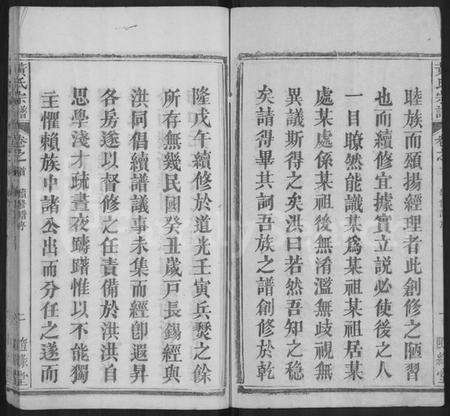 睦族而頌揚經理者此創修之陋習
也而續修宜據實立説必使後之人
一目瞭然能識某爲某祖祖居某
處某處係某祖後無淆濫無歧視無
異議斯得之矣洪曰若然吾知之稔
矣請得畢其詞吾族之譜創修於乾
隆戊午續修於道光壬寅兵燹之餘
所存無幾民國癸丑歲戸長錫經與
洪同倡續譜議事未集而經卽遐昇
各房遂以督修之任責備於洪洪自
思學淺才疏晝夜躊躇惟以不能獨
主懼賴族中諸公出而分任之遂而
黃氏宗譜
卷之首